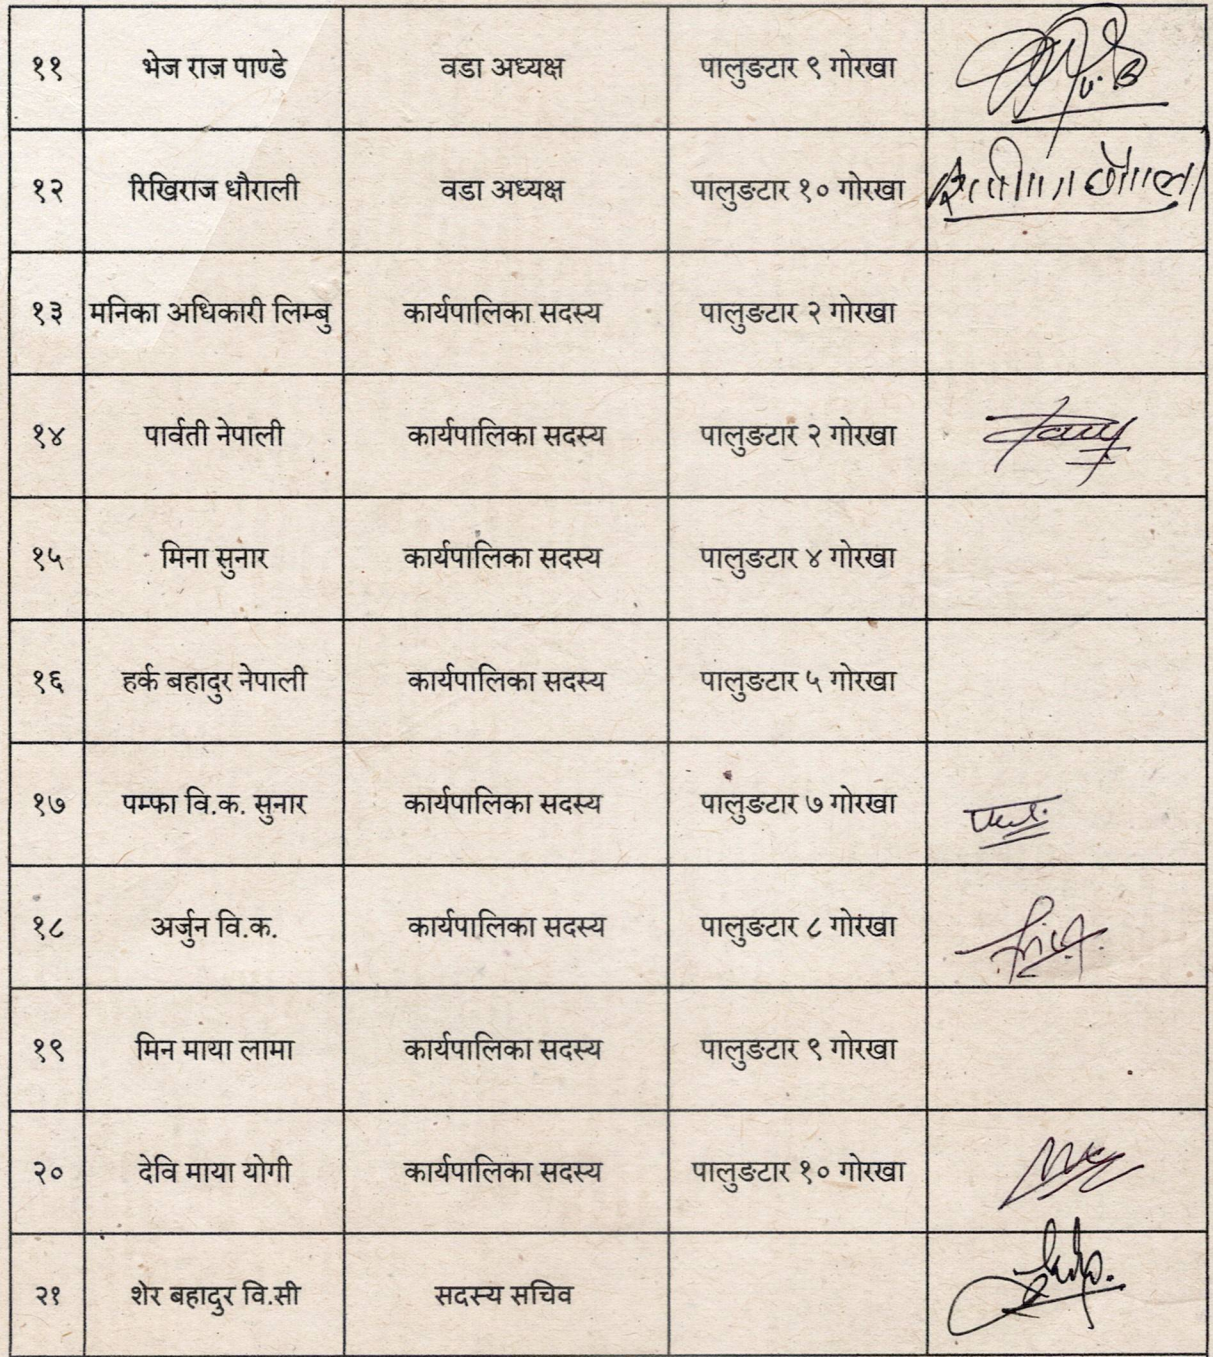 ११ भेज राज पाण्डे वडा अध्यक्ष पालुङटार ९ गोरखा
१२ रिखिराज धौराली वडा अध्यक्ष पालुङटार १० गोरखा
१३ मनिका अधिकारी लिम्बु कार्यपालिका सदस्य पालुङटार २ गोरखा
१४ पार्वती नेपाली कार्यपालिका सदस्य पालुङटार २ गोरखा
१५ मिना सुनार कार्यपालिका सदस्य पालुङटार ४ गोरखा
१६ हर्क बहादुर नेपाली कार्यपालिका सदस्य पालुङटार ५ गोरखा
१७ पम्फा वि.क. सुनार कार्यपालिका सदस्य पालुङटार ७ गोरखा
१८ अर्जुन वि.क. कार्यपालिका सदस्य पालुङटार ८ गोरखा
१९ मिन माया लामा कार्यपालिका सदस्य पालुङटार ९ गोरखा
२० देवि माया योगी कार्यपालिका सदस्य पालुङटार १० गोरखा
२१ शेर बहादुर वि.सी सदस्य सचिव